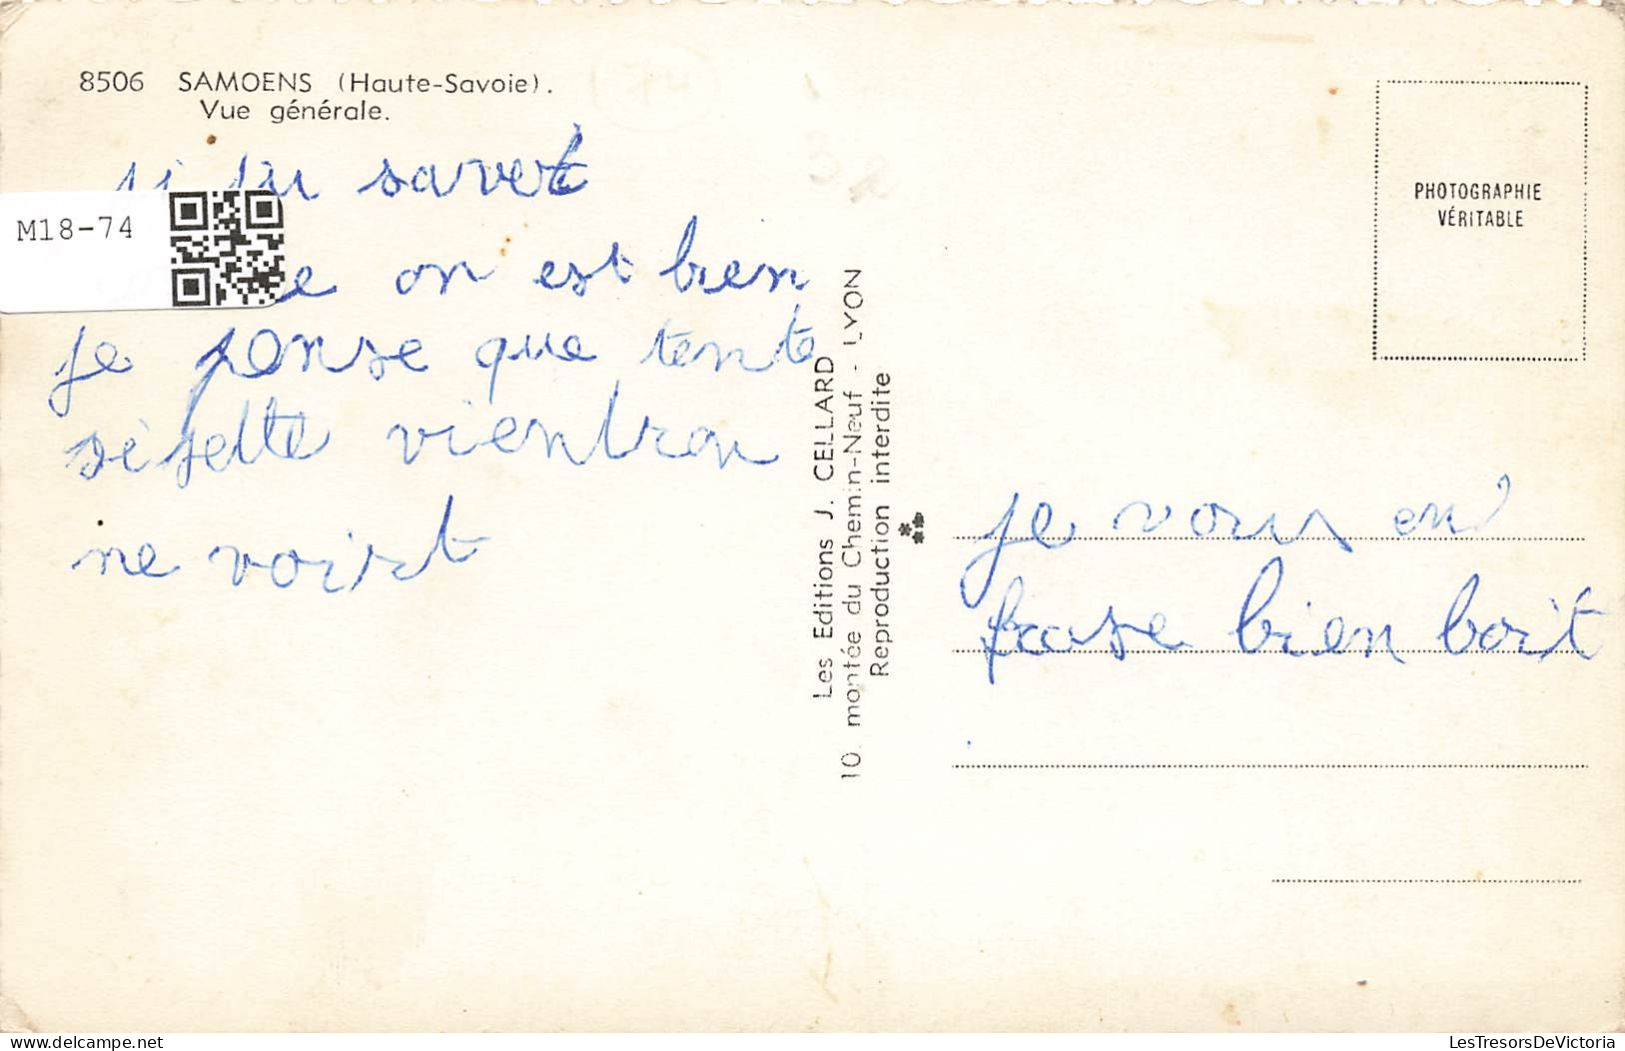 8506 SAMOENS (Haute-Savoie).
Vue générale.
si tu savet
M18-74
on est bien
je panse que tente
sèsette viendron
ne voirt
Les Editions J. CELLARD
10, montée du Chemin-Neuf - LYON
Reproduction interdite
PHOTOGRAPHIE
VÉRITABLE
je vous en
brase bien boit
LesTresorsDeVictoria